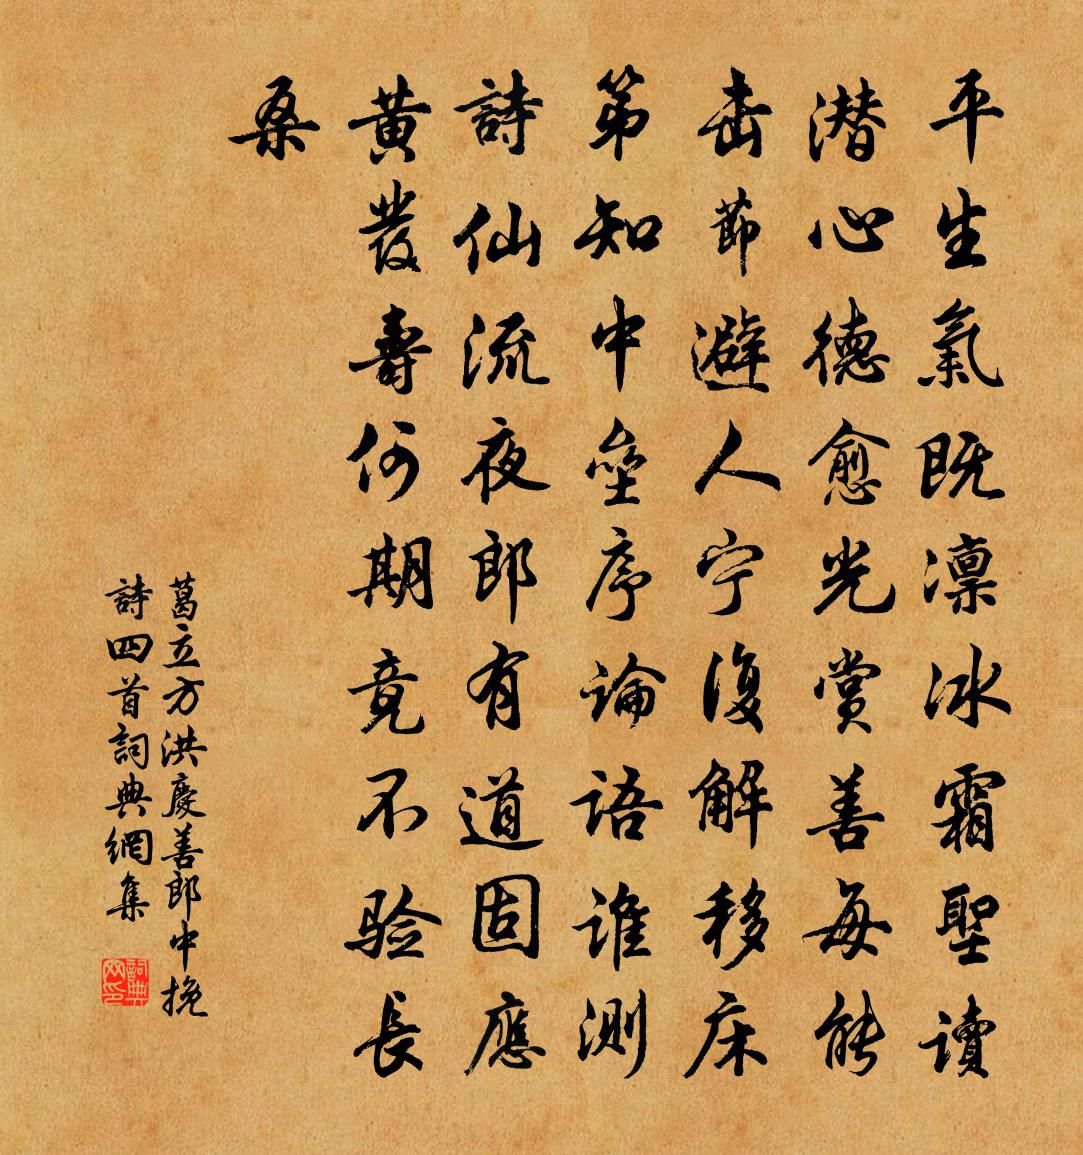 平生氣既凛冰霜聖讀
潜心德愈光賞善每能
击節避人宁復解移床
第知中壘序論語谁測
詩仙流夜郎有道固應
黄發壽何期竟不验長
桑
葛立方洪慶善郎中挽
詩四首詞典網集
詞典網印